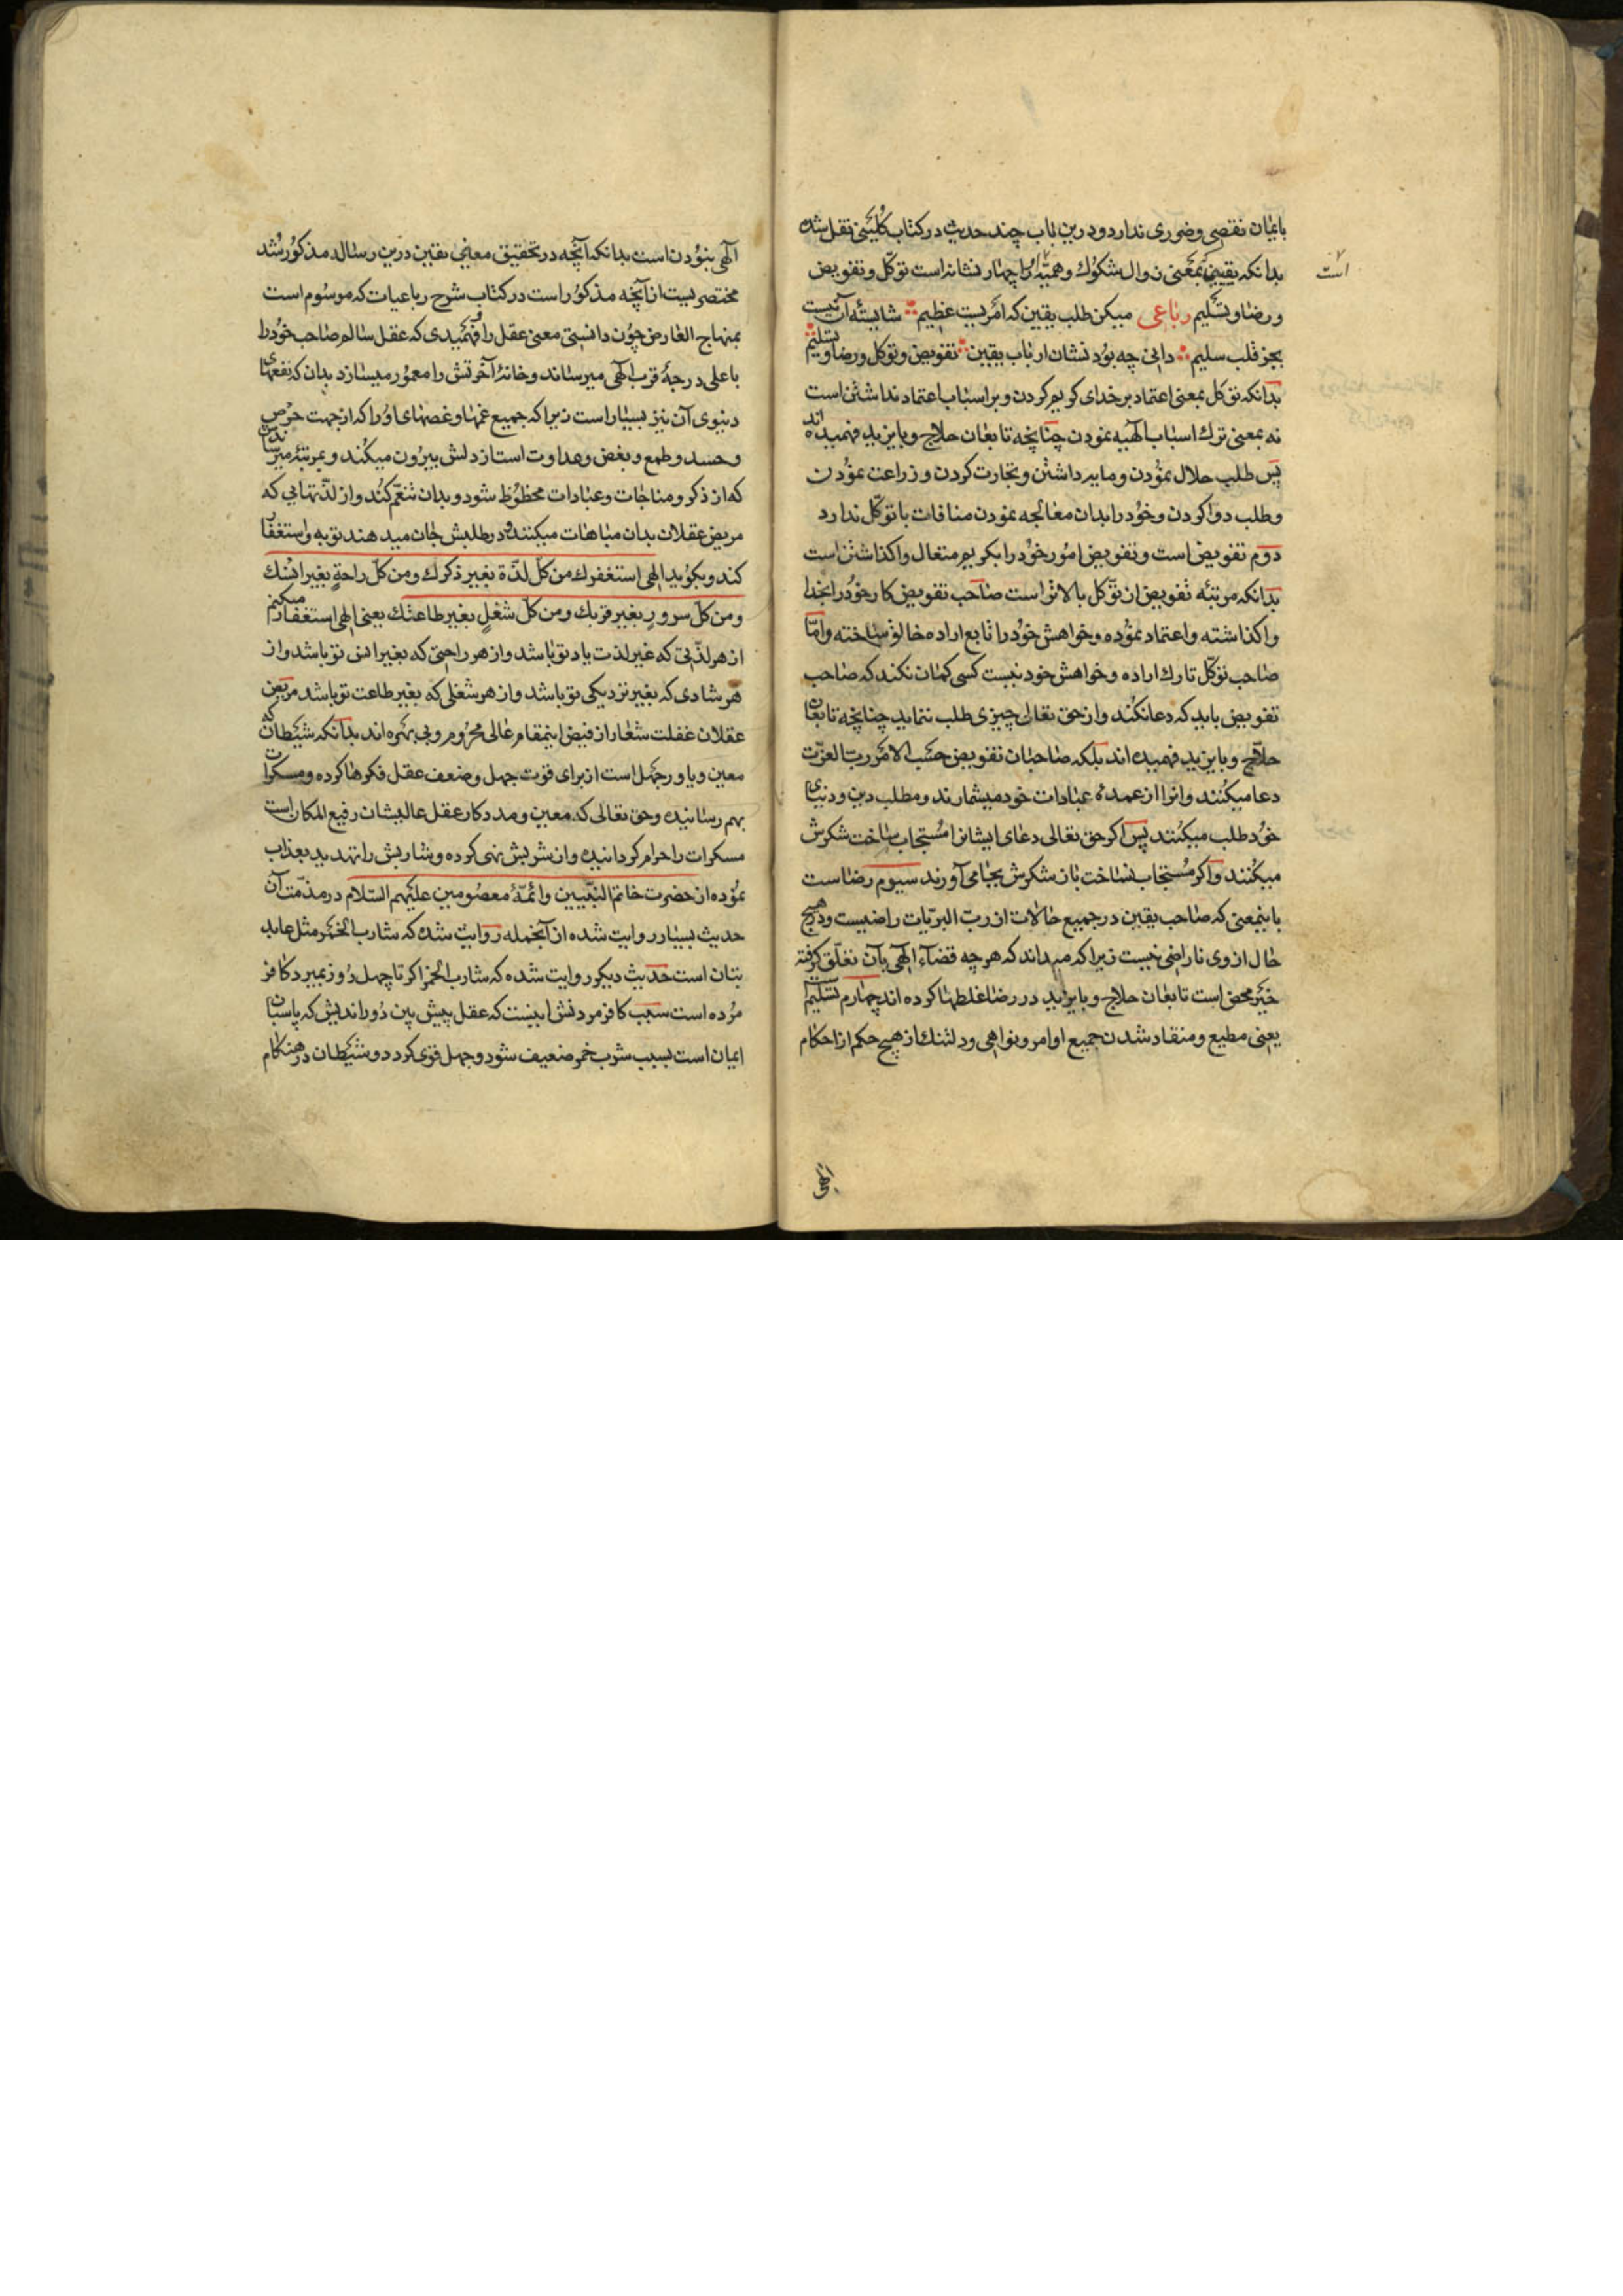 بایمان نقصی و ضرری ندارد و درین باب چند حدیث در کتاب کلینی نقل شده
بدانکه یقینی که بمعنی زوال شکوک وهمیّه است او را چهار نشانه است توکّل و تفویض
و رضا و تسلیم رباعی میکن طلب یقین که امریست عظیم شایستهٔ آن نیست
بجز قلب سلیم دانی چه بود نشان ارباب یقین تفویض و توکل و رضا و تسلیم
بدانکه توکل بمعنی اعتماد بر خدای کریم کردن و بر اسباب اعتماد نداشتن است
نه بمعنی ترک اسباب الهیه نمودن چنانچه تابعان حلاج و بایزید فهمیده اند
پس طلب حلال نمودن و مایه داشتن و تجارت کردن و زراعت نمودن
و طلب دوا کردن و خود را بدان معالجه نمودن منافات با توکّل ندارد
دوم تفویض است و تفویض امور خود را بکریم متعال واکذاشتن است
بدانکه مرتبهٔ تفویض از توکل بالاتر است صاحب تفویض کار خود را بخدا
واکذاشته و اعتماد نموده و خواهش خود را تابع اراده خالق ساخته و امّا
صاحب توکّل تارک اراده و خواهش خود نیست کسی کمان نکند که صاحب
تفویض باید که دعا نکند و از حق تعالی چیزی طلب ننماید چنانچه تابعان
حلاّج و بایزید فهمیده اند بلکه صاحبان تفویض حسب الامر ربّ العزّت
دعا میکنند و انرا از عمدهٔ عبادات خود میشمارند و مطلب دین و دنیای
خود طلب میکنند پس اکر حق تعالی دعای ایشانرا مستجاب ساخت شکرش
میکنند و اکر مستجاب نساخت باز شکرش بجا می آورند سیوم رضاست
باینمعنی که صاحب یقین در جمیع حالات از ربّ البریّات راضیست و در هیچ
حال از وی ناراضی نیست زیرا که میداند که هر چه قضاء الهی بآن تعلّق کرفته
خیر محض است تابعان حلاج و بایزید در رضا غلطها کرده اند چهارم تسلیم است
یعنی مطیع و منقاد شدن جمیع اوامر و نواهی و دلتنک از هیچ حکم از احکام
الهی
الهی نبودن است بدانکه آنچه در تحقیق معانی یقین درین رساله مذکور شد
مختصریست از آنچه مذکور است در کتاب شرح رباعیات که موسوم است
بمنهاج العارفین چون دانستی معنی عقل را و فهمیدی که عقل سالم صاحب خود را
باعلی درجهٔ قرب الهی میرساند و خانهٔ آخرتش را معمور میسازد بدان که نفعهای
دنیوی آن نیز بسیار است زیرا که جمیع غمها و غصهای او را که از جهت حرص
و حسد و طمع و بغض و عداوت است از دلش بیرون میکند و بمرتبهٔ میرساندش
که از ذکر و مناجات و عبادات محظوظ شود و بدان تنعّم کند و از لذّتهایی که
مریض عقلان بدان مباهات میکنند و در طلبش جان میدهند توبه و استغفار
کند و بکوید الهی استغفرک من کلّ لذّة بغیر ذکرک و من کلّ راحةٍ بغیر انسک
و من کلّ سرورٍ بغیر قربک و من کلّ شغلٍ بغیر طاعتک یعنی الهی استغفار میکنم
از هر لذّتی که غیر لذت یاد تو باشد و از هر راحتی که بغیر انس تو باشد و از
هر شادی که بغیر نزدیکی تو باشد و از هر شغلی که بغیر طاعت تو باشد مریض
عقلان غفلت شعار از فیض اینمقام عالی محروم و بی بهره اند بدانکه شیطان که
معین و یاور جهل است از برای قوت جهل و ضعف عقل فکرها کرده و مسکرات
بهم رسانیده و حق تعالی که معین و مددکار عقل عالیشان رفیع المکان است
مسکرات را حرام کردانیده و از شربش نهی کرده و شاربش را تهدید بعذاب
نموده از حضرت خاتم النبّیین و ائمّهٔ معصومین علیهم السّلام در مذمّت آن
حدیث بسیار روایت شده از آنجمله روایت شده که شارب الخمر مثل عابد
بتان است حدیث دیکر روایت شده که شارب الخمر اکر تا چهل روز بمیرد کافر
مرده است سبب کافر مردنش اینست که عقل پیش بین دوراندیش که پاسبان
ایمان است بسبب شرب خمر ضعیف شود و جهل قوی کردد و شیطان در هنکام